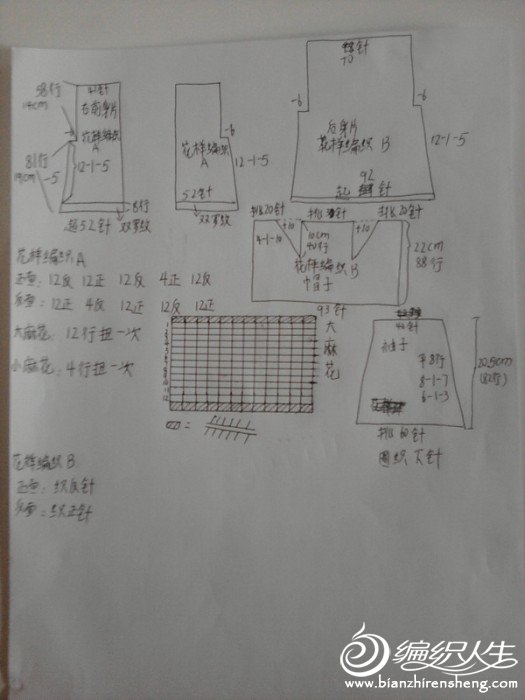 58行
14cm
41针
右前身片
花样编织
A
81行
19cm
-5
8行
起52针 双罗纹
花样编织
A
-6
12-1-5
52针
双罗纹
70
-6
-6
后身片
花样编织 B
12-1-5
92
起 针
挑20针
挑 针
挑20针
+10
+10
4-1-10
10cm
40行
花样编织B
帽子
22cm
88行
93针
花样编织A
正面: 12反 12正 12反 4正 12反
反面: 12正 4反 12正 12反 12正
大麻花: 12行扭一次
小麻花: 4行扭一次
大麻花
40针
袖子
平8行
8-1-7
6-1-3
20.5cm
(82行)
挑60针
圈织下针
花样编织B
正面: 织反针
反面: 织正针
编织人生
www.bianzhirensheng.com